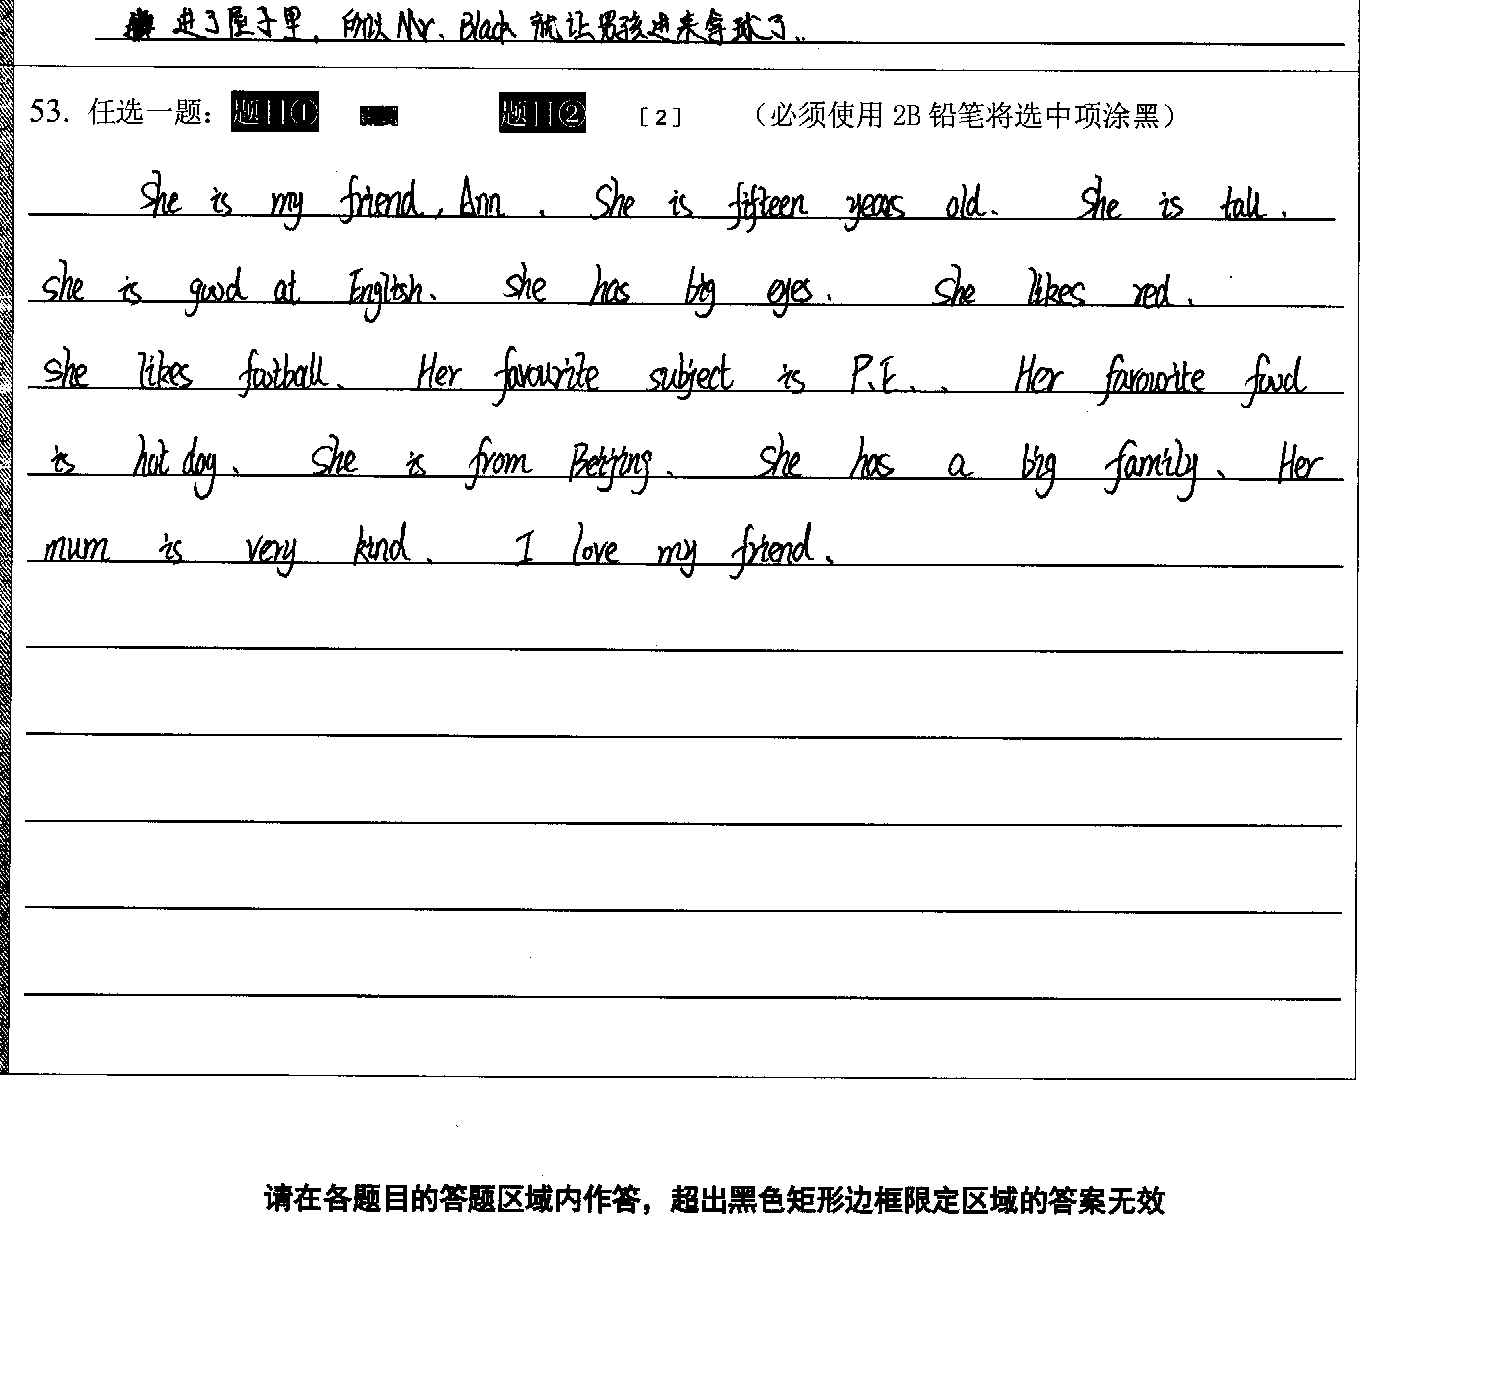 进了屋子里，所以 Mr. Black 就让男孩进来拿球了。
53. 任选一题： 题目① 题目② [2] （必须使用 2B 铅笔将选中项涂黑）
She is my friend, Ann. She is fifteen years old. She is tall.
she is good at English. she has big eyes. she likes red.
she likes football. Her favourite subject is P.E.. Her favourite food
is hot dog. She is from Beijing. she has a big family. Her
mum is very kind. I love my friend.
请在各题目的答题区域内作答，超出黑色矩形边框限定区域的答案无效